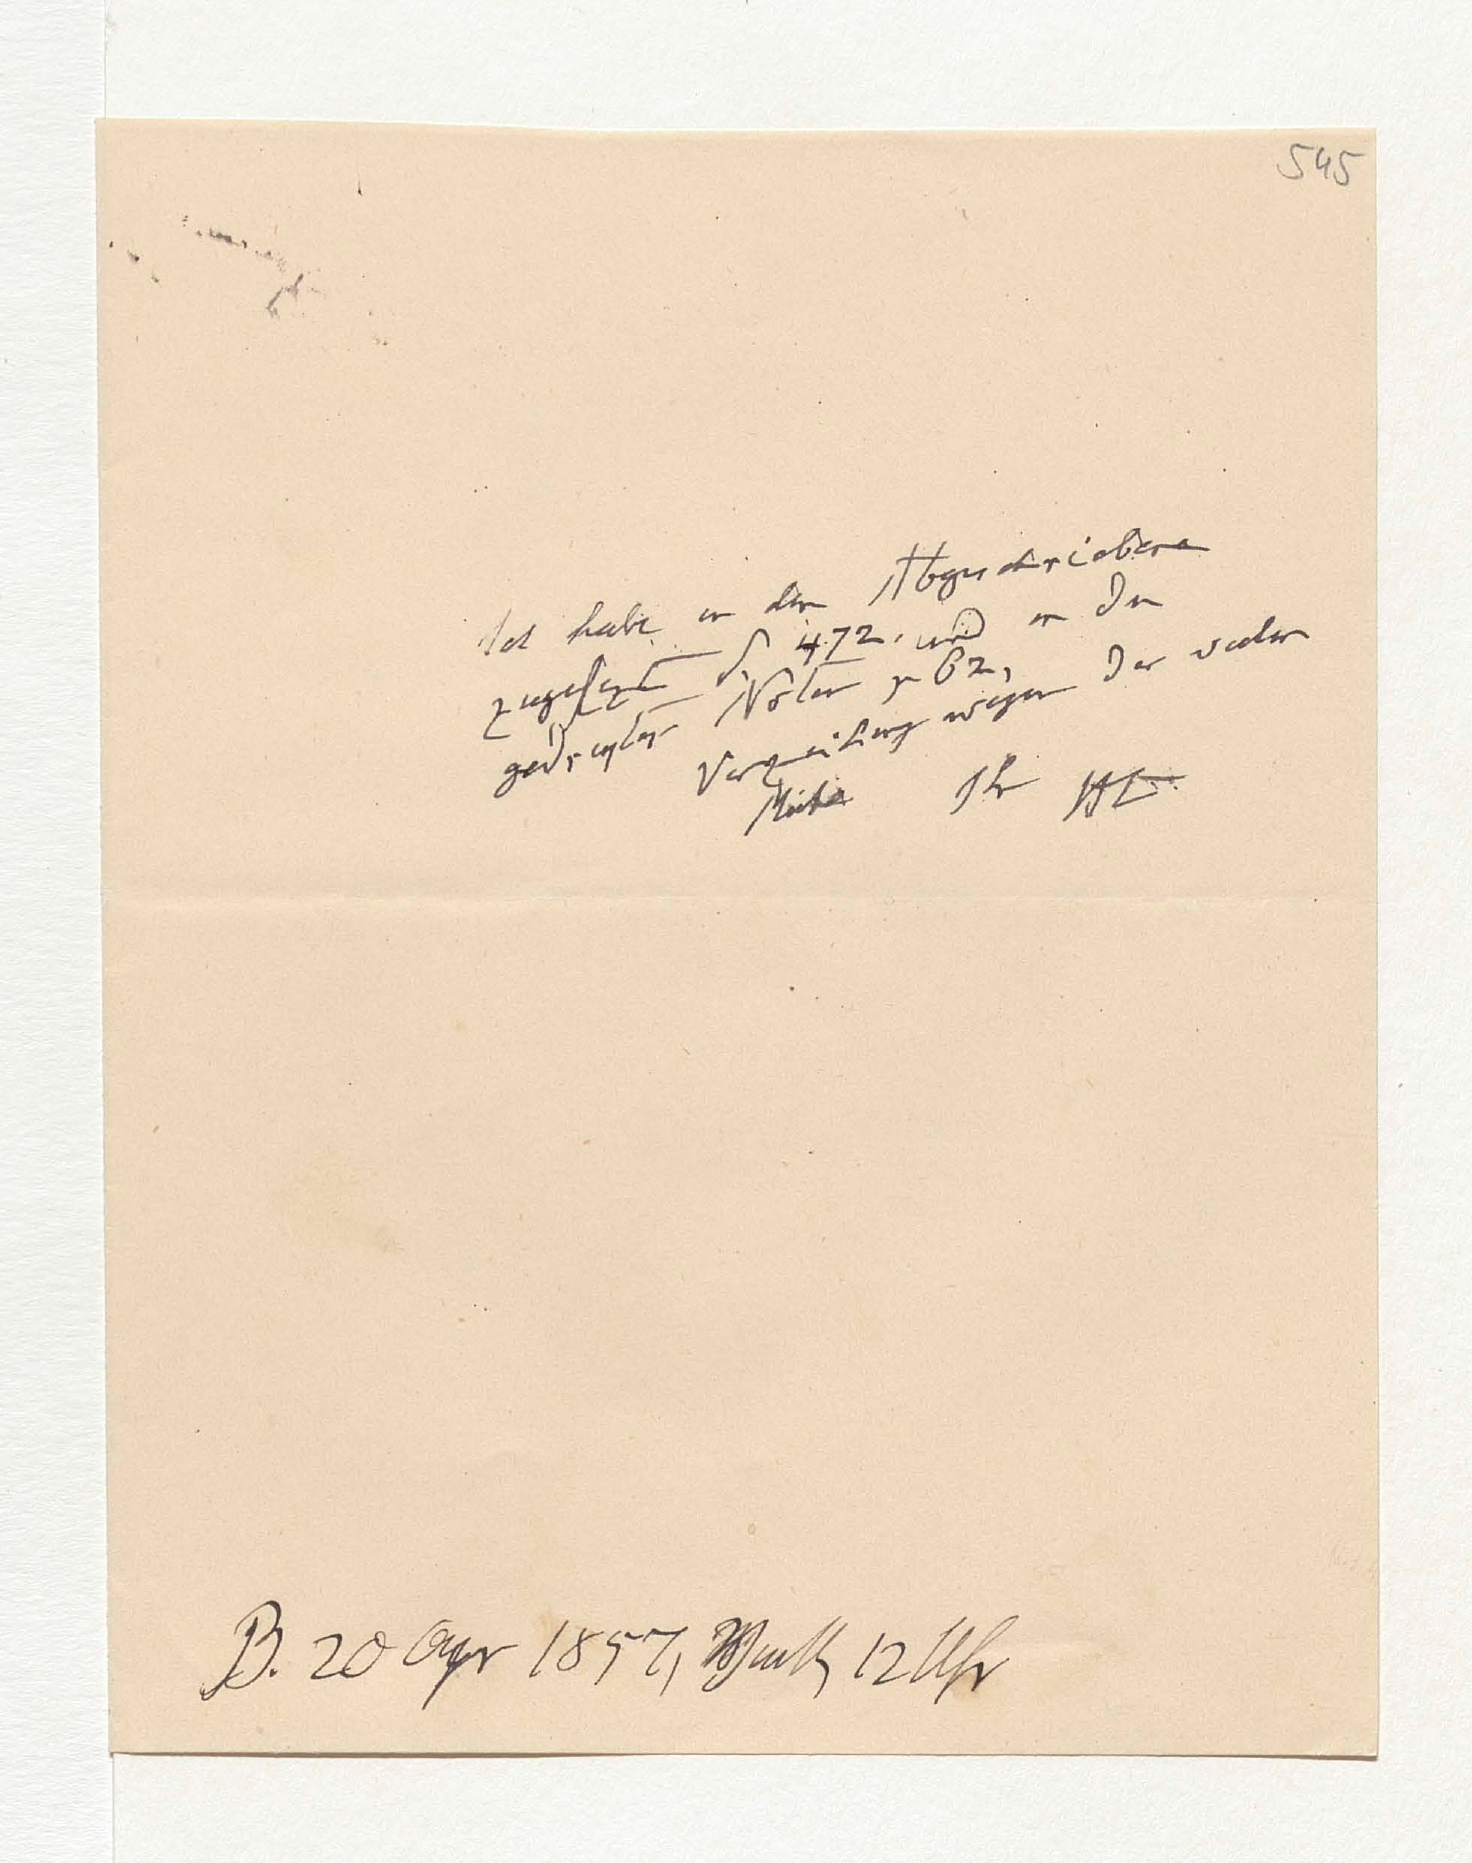 545
Ich habe in dem Abgeschriebene
zugesezt S 472. und in den
gedrukten Noten p 62,
Verzeihung wegen der vielen
Mühe Ihr AHt
B. 20 Apr 1857, 12 Uhr